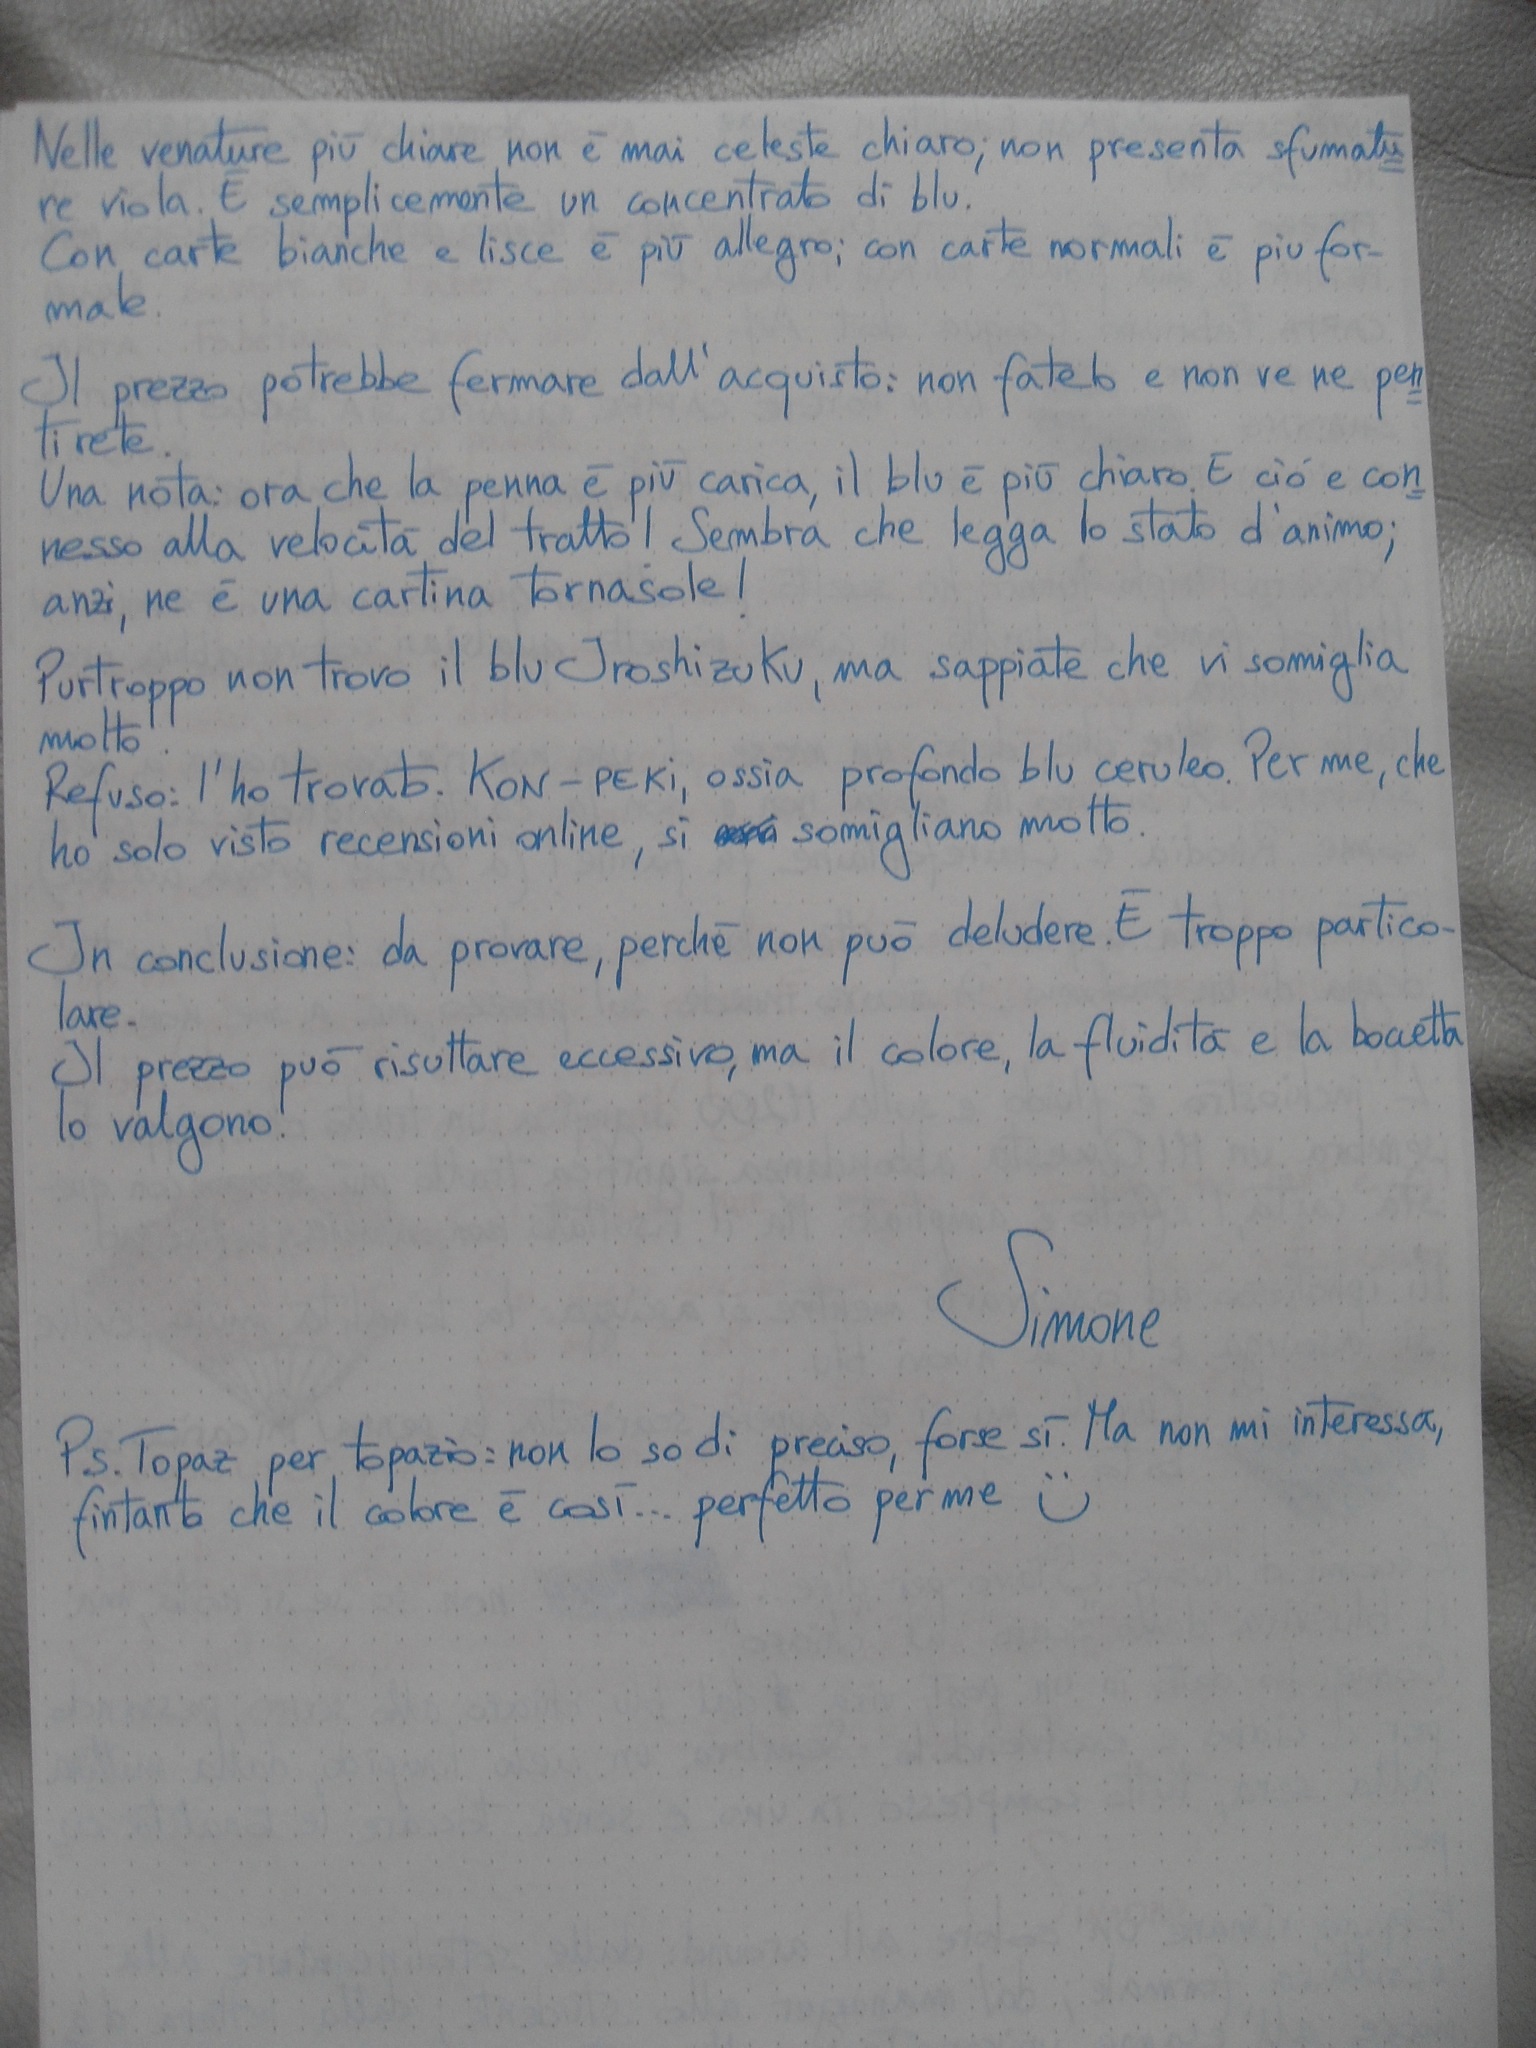 Nelle venature più chiare non è mai celeste chiaro; non presenta sfumatu=
re viola. È semplicemente un concentrato di blu.
Con carte bianche e lisce è più allegro; con carte normali è piu for-
male.
Il prezzo potrebbe fermare dall'acquisto: non fatelo e non ve ne pen=
tirete.
Una nota: ora che la penna è più carica, il blu è più chiaro. E ciò e con=
nesso alla velocità del tratto! Sembra che legga lo stato d'animo;
anzi, ne è una cartina tornasole!
Purtroppo non trovo il blu Iroshizuku, ma sappiate che vi somiglia
molto.
Refuso: l'ho trovato. KON-PEKi, ossia profondo blu ceruleo. Per me, che
ho solo visto recensioni online, si somigliano molto.
In conclusione: da provare, perchè non può deludere. È troppo partico-
lare.
Il prezzo può risultare eccessivo, ma il colore, la fluidità e la boccetta
lo valgono!
Simone
Ps. Topaz per topazio: non lo so di preciso, forse sì. Ma non mi interessa,
fintanto che il colore è così... perfetto per me :)